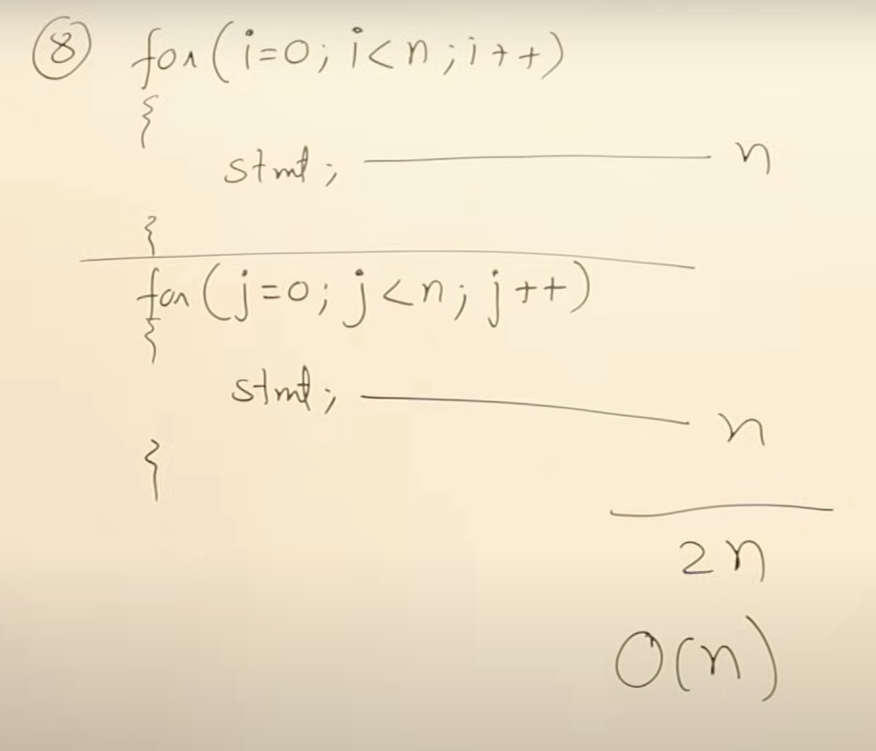 8 for(i=0; i<n; i++)
{
stmt; n
}
for(j=0; j<n; j++)
{
stmt; n
}
2n
O(n)